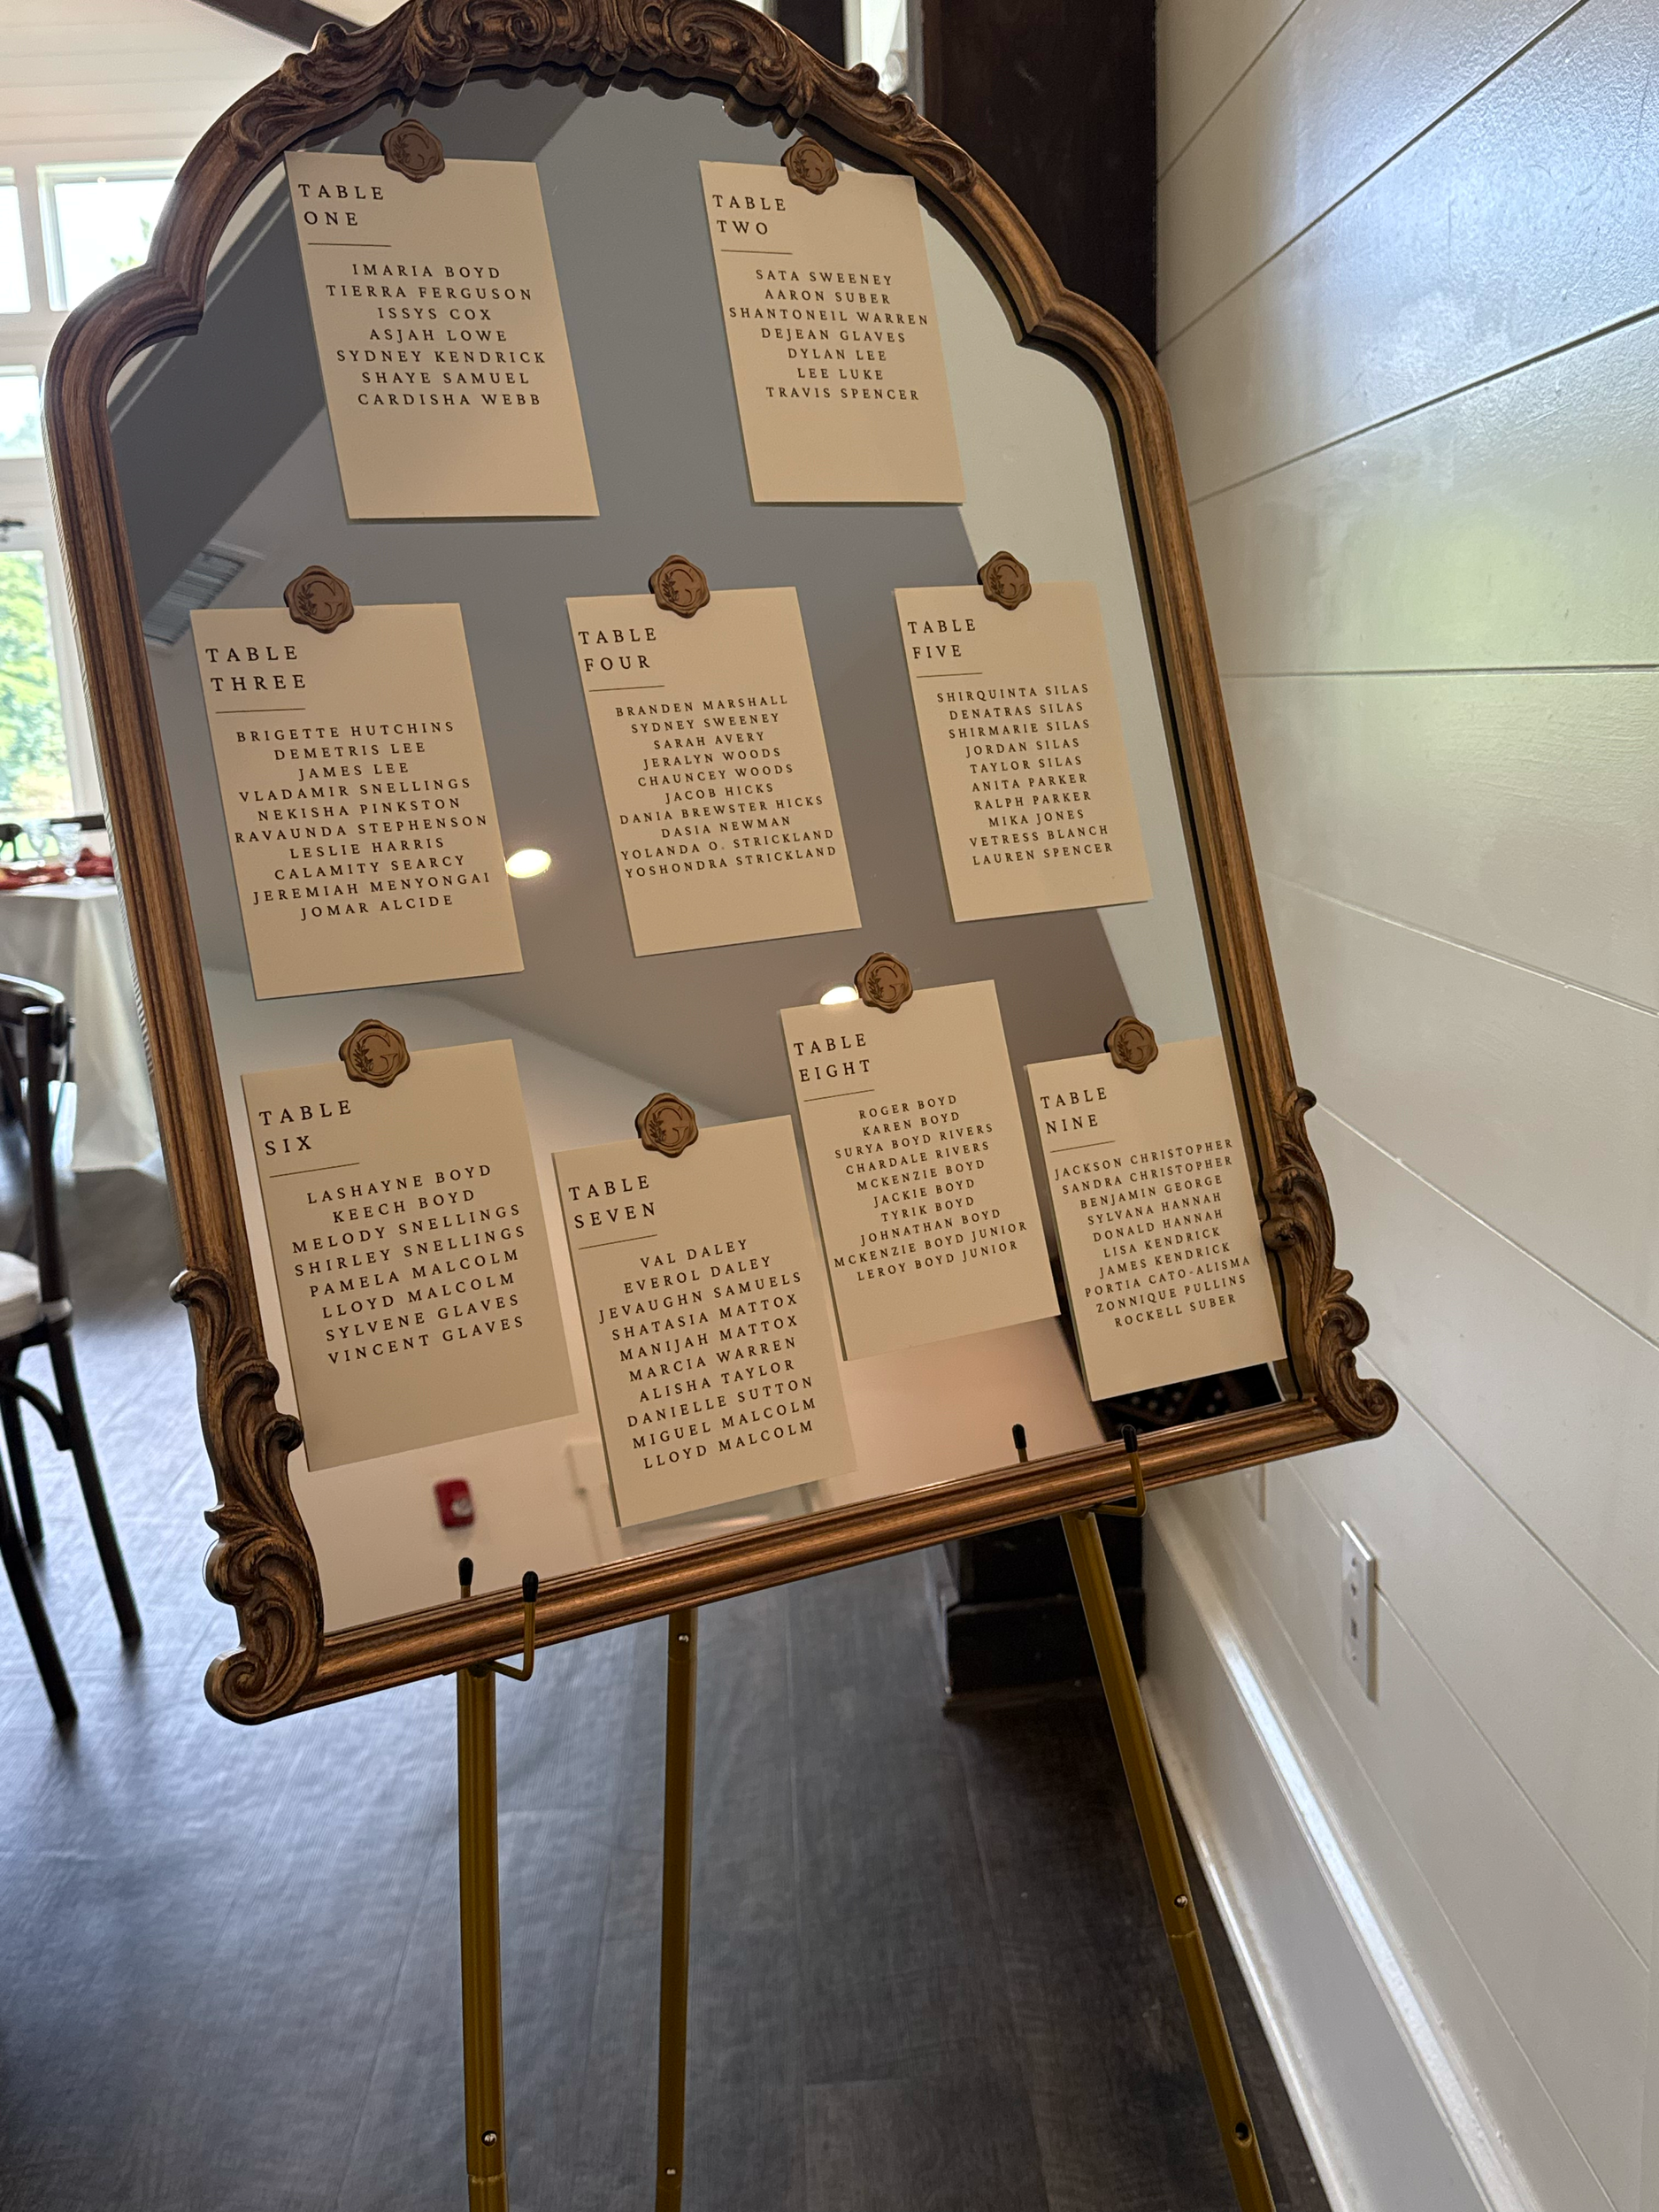 TABLE
ONE
IMARIA BOYD
TIERRA FERGUSON
ISSYS COX
ASJAH LOWE
SYDNEY KENDRICK
SHAYE SAMUEL
CARDISHA WEBB
TABLE
TWO
SATA SWEENEY
AARON SUBER
SHANTONEIL WARREN
DEJEAN GLAVES
DYLAN LEE
LEE LUKE
TRAVIS SPENCER
TABLE
THREE
BRIGETTE HUTCHINS
DEMETRIS LEE
JAMES LEE
VLADAMIR SNELLINGS
NEKISHA PINKSTON
RAVAUNDA STEPHENSON
LESLIE HARRIS
CALAMITY SEARCY
JEREMIAH MENYONGAI
JOMAR ALCIDE
TABLE
FOUR
BRANDEN MARSHALL
SYDNEY SWEENEY
SARAH AVERY
JERALYN WOODS
CHAUNCEY WOODS
JACOB HICKS
DANIA BREWSTER HICKS
DASIA NEWMAN
YOLANDA O. STRICKLAND
YOSHONDRA STRICKLAND
TABLE
FIVE
SHIRQUINTA SILAS
DENATRAS SILAS
SHIRMARIE SILAS
JORDAN SILAS
TAYLOR SILAS
ANITA PARKER
RALPH PARKER
MIKA JONES
VETRESS BLANCH
LAUREN SPENCER
TABLE
SIX
LASHAYNE BOYD
KEECH BOYD
MELODY SNELLINGS
SHIRLEY SNELLINGS
PAMELA MALCOLM
LLOYD MALCOLM
SYLVENE GLAVES
VINCENT GLAVES
TABLE
SEVEN
VAL DALEY
EVEROL DALEY
JEVAUGHN SAMUELS
SHATASIA MATTOX
MANIJAH MATTOX
MARCIA WARREN
ALISHA TAYLOR
DANIELLE SUTTON
MIGUEL MALCOLM
LLOYD MALCOLM
TABLE
EIGHT
ROGER BOYD
KAREN BOYD
SURYA BOYD RIVERS
CHARDALE RIVERS
MCKENZIE BOYD
JACKIE BOYD
TYRIK BOYD
JOHNATHAN BOYD
MCKENZIE BOYD JUNIOR
LEROY BOYD JUNIOR
TABLE
NINE
JACKSON CHRISTOPHER
SANDRA CHRISTOPHER
BENJAMIN GEORGE
SYLVANA HANNAH
DONALD HANNAH
LISA KENDRICK
JAMES KENDRICK
PORTIA CATO-ALISMA
ZONNIQUE PULLINS
ROCKELL SUBER
G
G
G
G
G
G
G
G
G